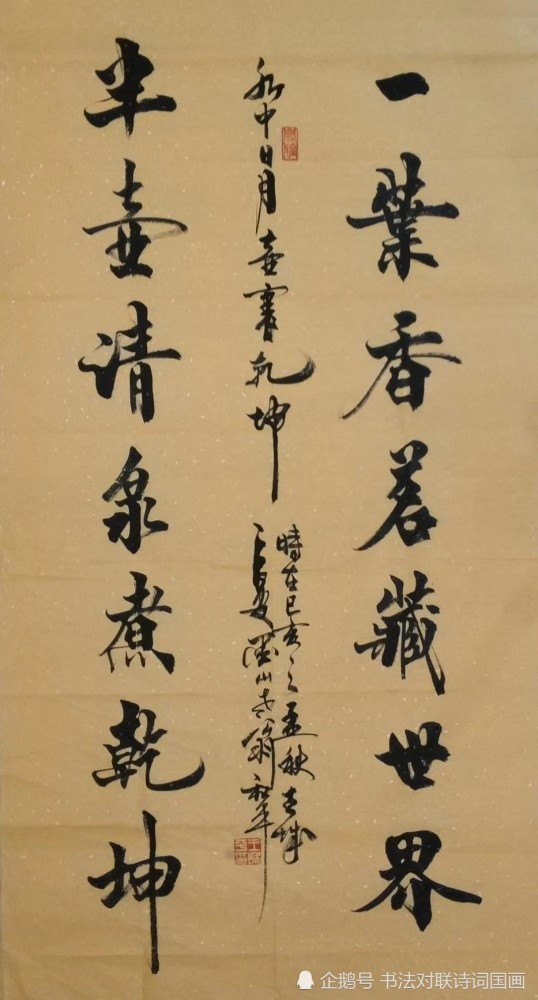 一葉香茗藏世界
水中日月壺裏乾坤
時在己亥之孟秋
半壺请泉煮乾坤
企鹅号 书法对联诗词国画